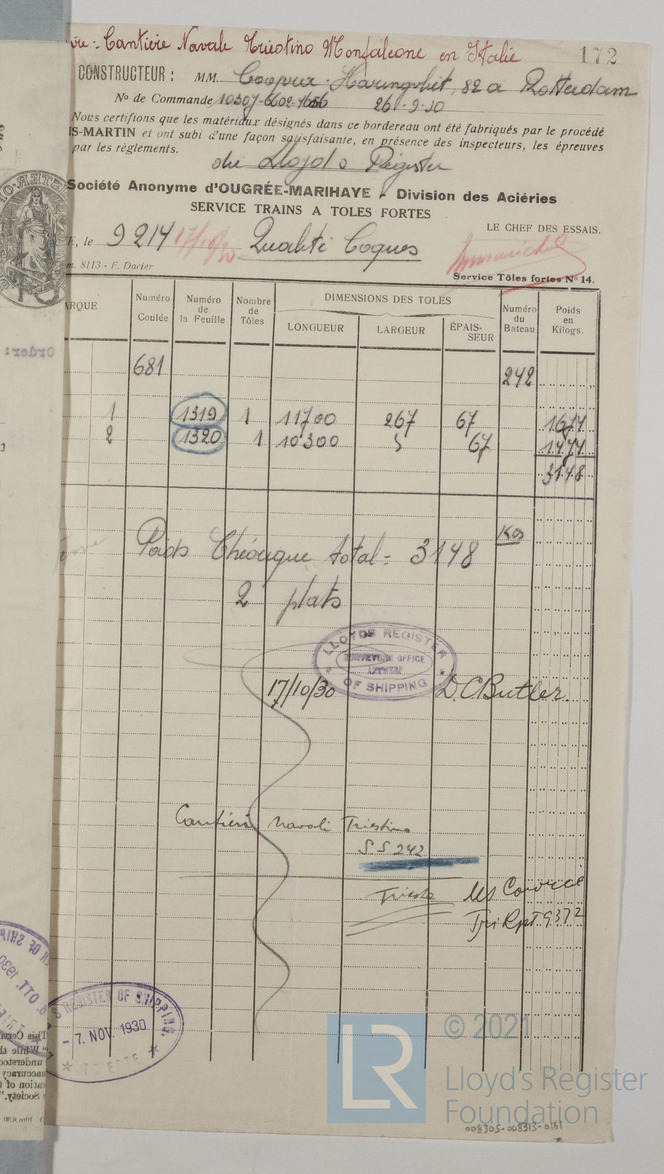 Cantiere Navale Triestino Monfalcone en Italie
172
CONSTRUCTEUR : MM. Haringvliet, 82 a Rotterdam
No de Commande 26-9-30
Nous certifions que les matériaux désignés dans ce bordereau ont été fabriqués par le procédé
IS-MARTIN et ont subi d'une façon satisfaisante, en présence des inspecteurs, les épreuves
par les règlements.
du Lloyds Register
Société Anonyme d'OUGRÉE-MARIHAYE - Division des Aciéries
SERVICE TRAINS A TOLES FORTES
LE CHEF DES ESSAIS.
E, le 9214 17/10/30 Qualité Coques
m. 8113 - F. Dacier
Service Tôles fortes No 14.
ARQUE Numéro Coulée Numéro de la Feuille Nombre de Tôles DIMENSIONS DES TOLES LONGUEUR LARGEUR ÉPAISSEUR Numéro du Bateau Poids en Kilogs.
681 242
1 1319 1 11700 267 67 1674
2 1320 1 10300 67 1474
3148
Poids Théorique total = 3148 Kos
2 plats
LLOYDS REGISTER
SURVEYORS OFFICE
OF SHIPPING
17/10/30 D.C. Butler.
Cantieri Navali Triestino
S.S 242
Trieste
Tri Rpt 9372
REGISTER OF SHIPPING.
- 7. NOV. 1930
TRIESTE
LR
© 2021
Lloyd's Register
Foundation
008305-008313-0161